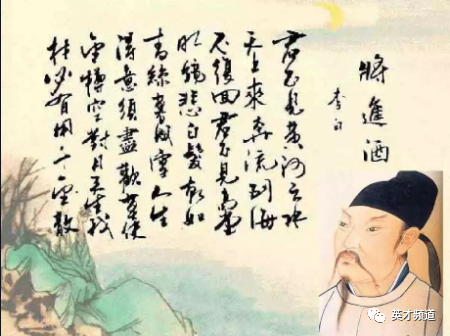 將進酒
李白
君不見黄河之水
天上來奔流到海
不復回君不見高堂
明鏡悲白髮朝如
青絲暮成雪人生
得意須盡歡莫使
金樽空對月天生我
材必有用千金散
英才频道